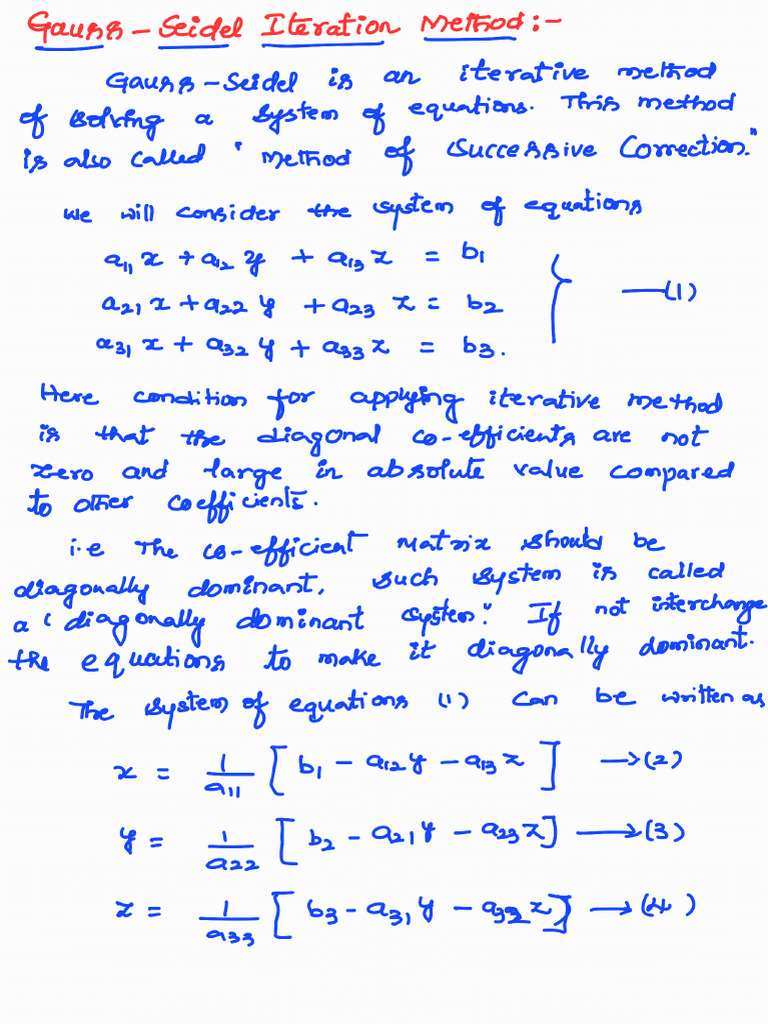 Gauss-Seidel Iteration Method:-
Gauss-Seidel is an iterative method
of solving a system of equations. This method
is also called "Method of Successive Correction."
we will consider the system of equations
a₁₁x + a₁₂y + a₁₃z = b₁
a₂₁x + a₂₂y + a₂₃z = b₂ —(1)
a₃₁x + a₃₂y + a₃₃z = b₃.
Here condition for applying iterative method
is that the diagonal co-efficients are not
zero and large in absolute value compared
to other coefficients.
i.e The co-efficient matrix should be
diagonally dominant, such system is called
a "diagonally dominant system." If not interchange
the equations to make it diagonally dominant.
The system of equations (1) can be written as
x = 1/a₁₁ [b₁ - a₁₂y - a₁₃z] →(2)
y = 1/a₂₂ [b₂ - a₂₁y - a₂₃z] →(3)
z = 1/a₃₃ [b₃ - a₃₁y - a₃₂z] →(4)